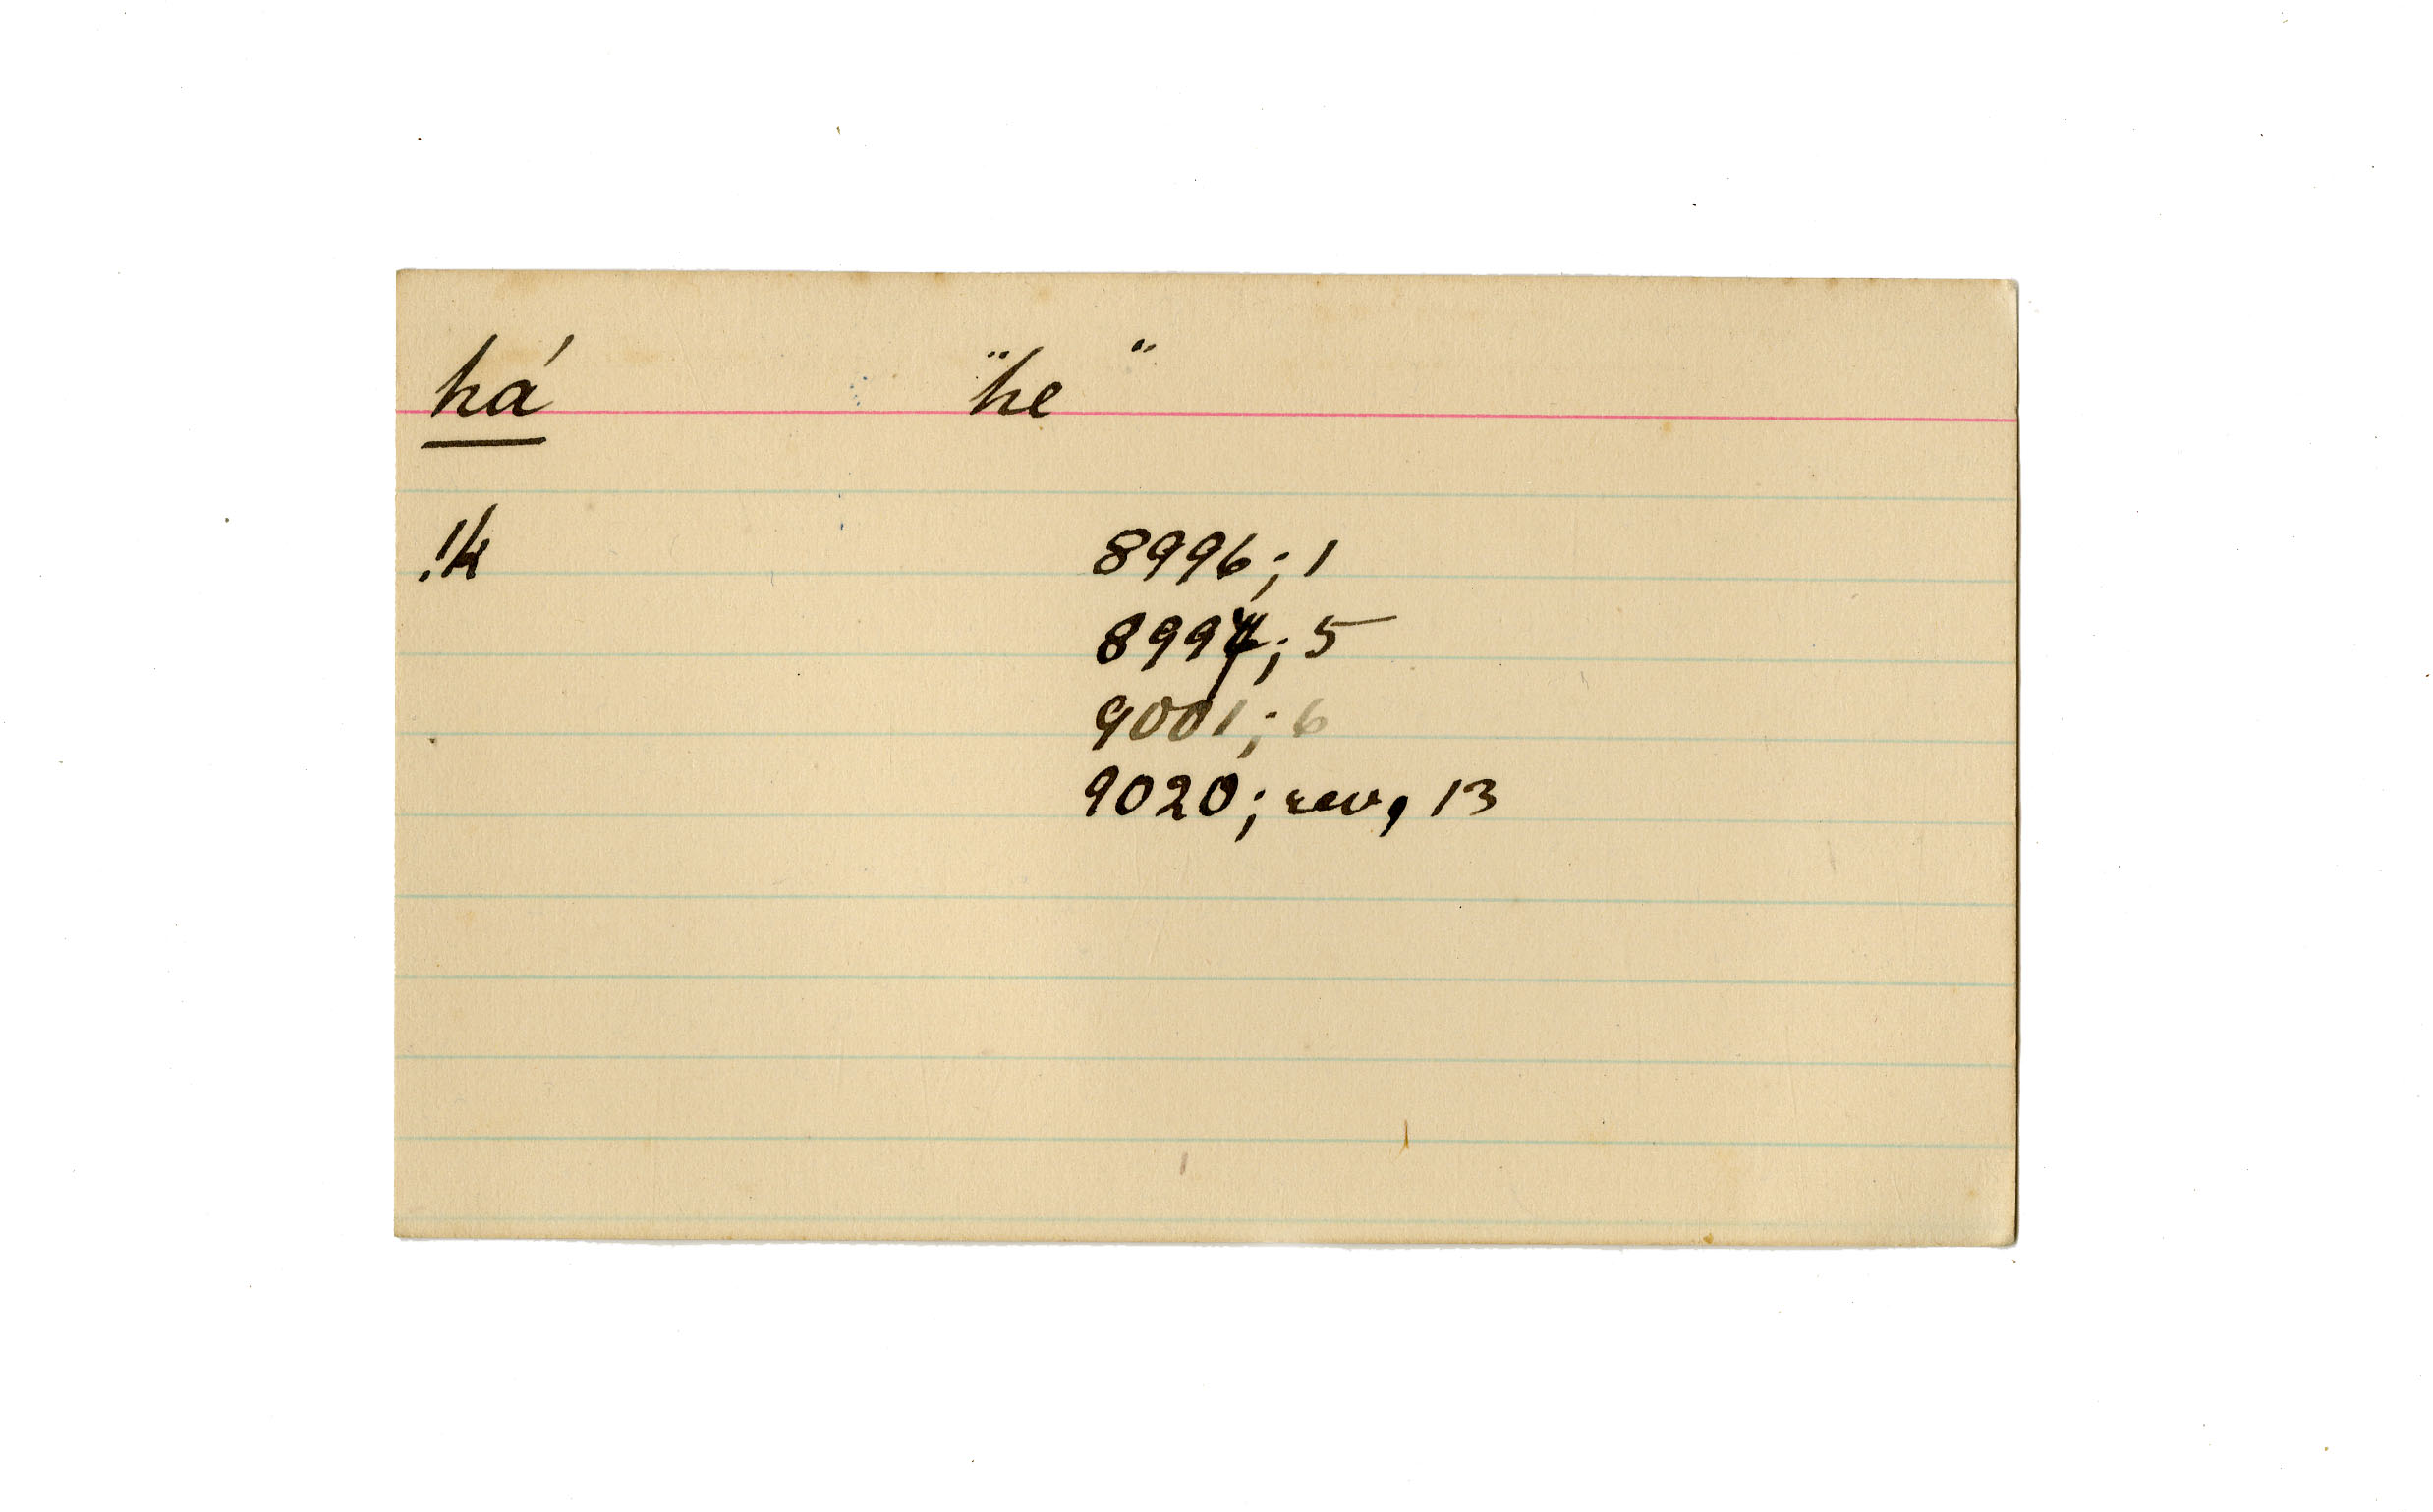 há "he"
!k 8996; 1
8997; 5
9001; 6
9020; rev, 13